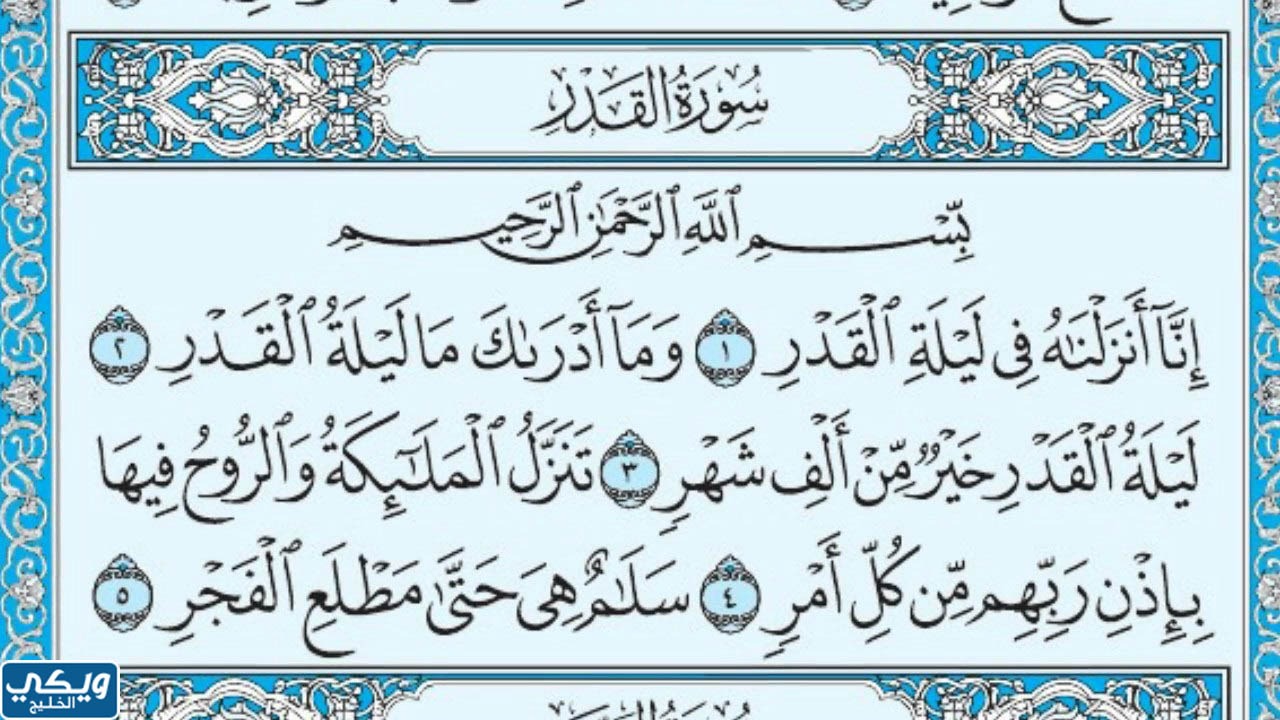 سُورَةُ الْقَدْرِ
بِّسْمِ ٱللَّهِ ٱلرَّحْمَٰنِ ٱلرَّحِيمِ
إِنَّآ أَنزَلْنَٰهُ فِى لَيْلَةِ ٱلْقَدْرِ ١ وَمَآ أَدْرَىٰكَ مَا لَيْلَةُ ٱلْقَدْرِ ٢
لَيْلَةُ ٱلْقَدْرِ خَيْرٌ مِّنْ أَلْفِ شَهْرٍ ٣ تَنَزَّلُ ٱلْمَلَٰٓئِكَةُ وَٱلرُّوحُ فِيهَا
بِإِذْنِ رَبِّهِم مِّن كُلِّ أَمْرٍ ٤ سَلَٰمٌ هِىَ حَتَّىٰ مَطْلَعِ ٱلْفَجْرِ ٥
ويكي
الخليج